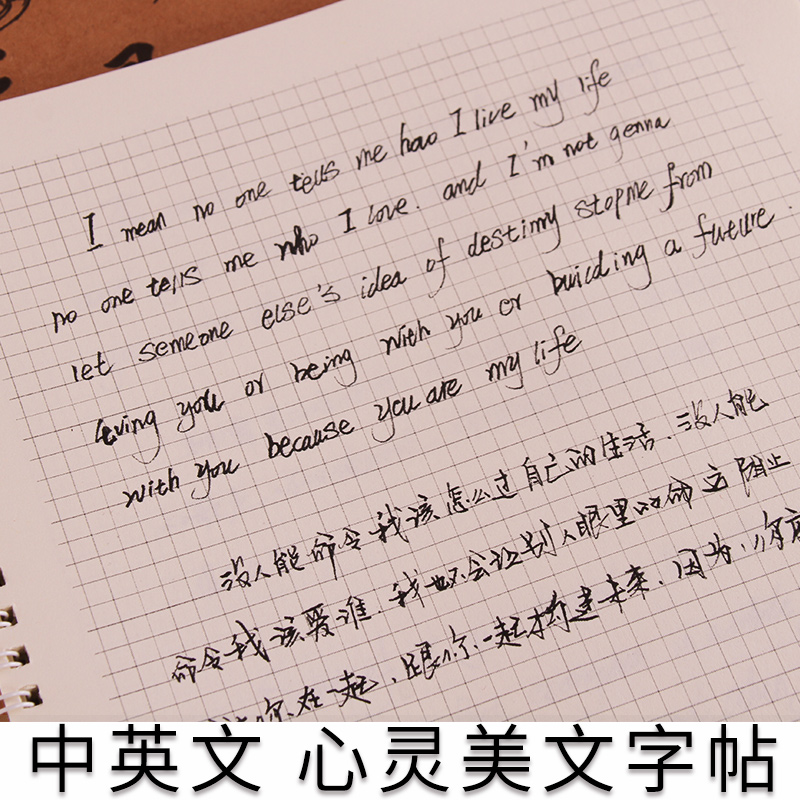 I mean no one tells me how I live my life
no one tells me who I love. and I'm not genna
let someone else's idea of destimy stopme from
loving you or being with you or building a future.
with you because you are my life
没人能命令我该怎么过自己的生活.没人能
命令我该爱谁.我也不会让别人眼里的命运阻止
你在一起、跟你一起构建未来.因为,你
中英文 心灵美文字帖